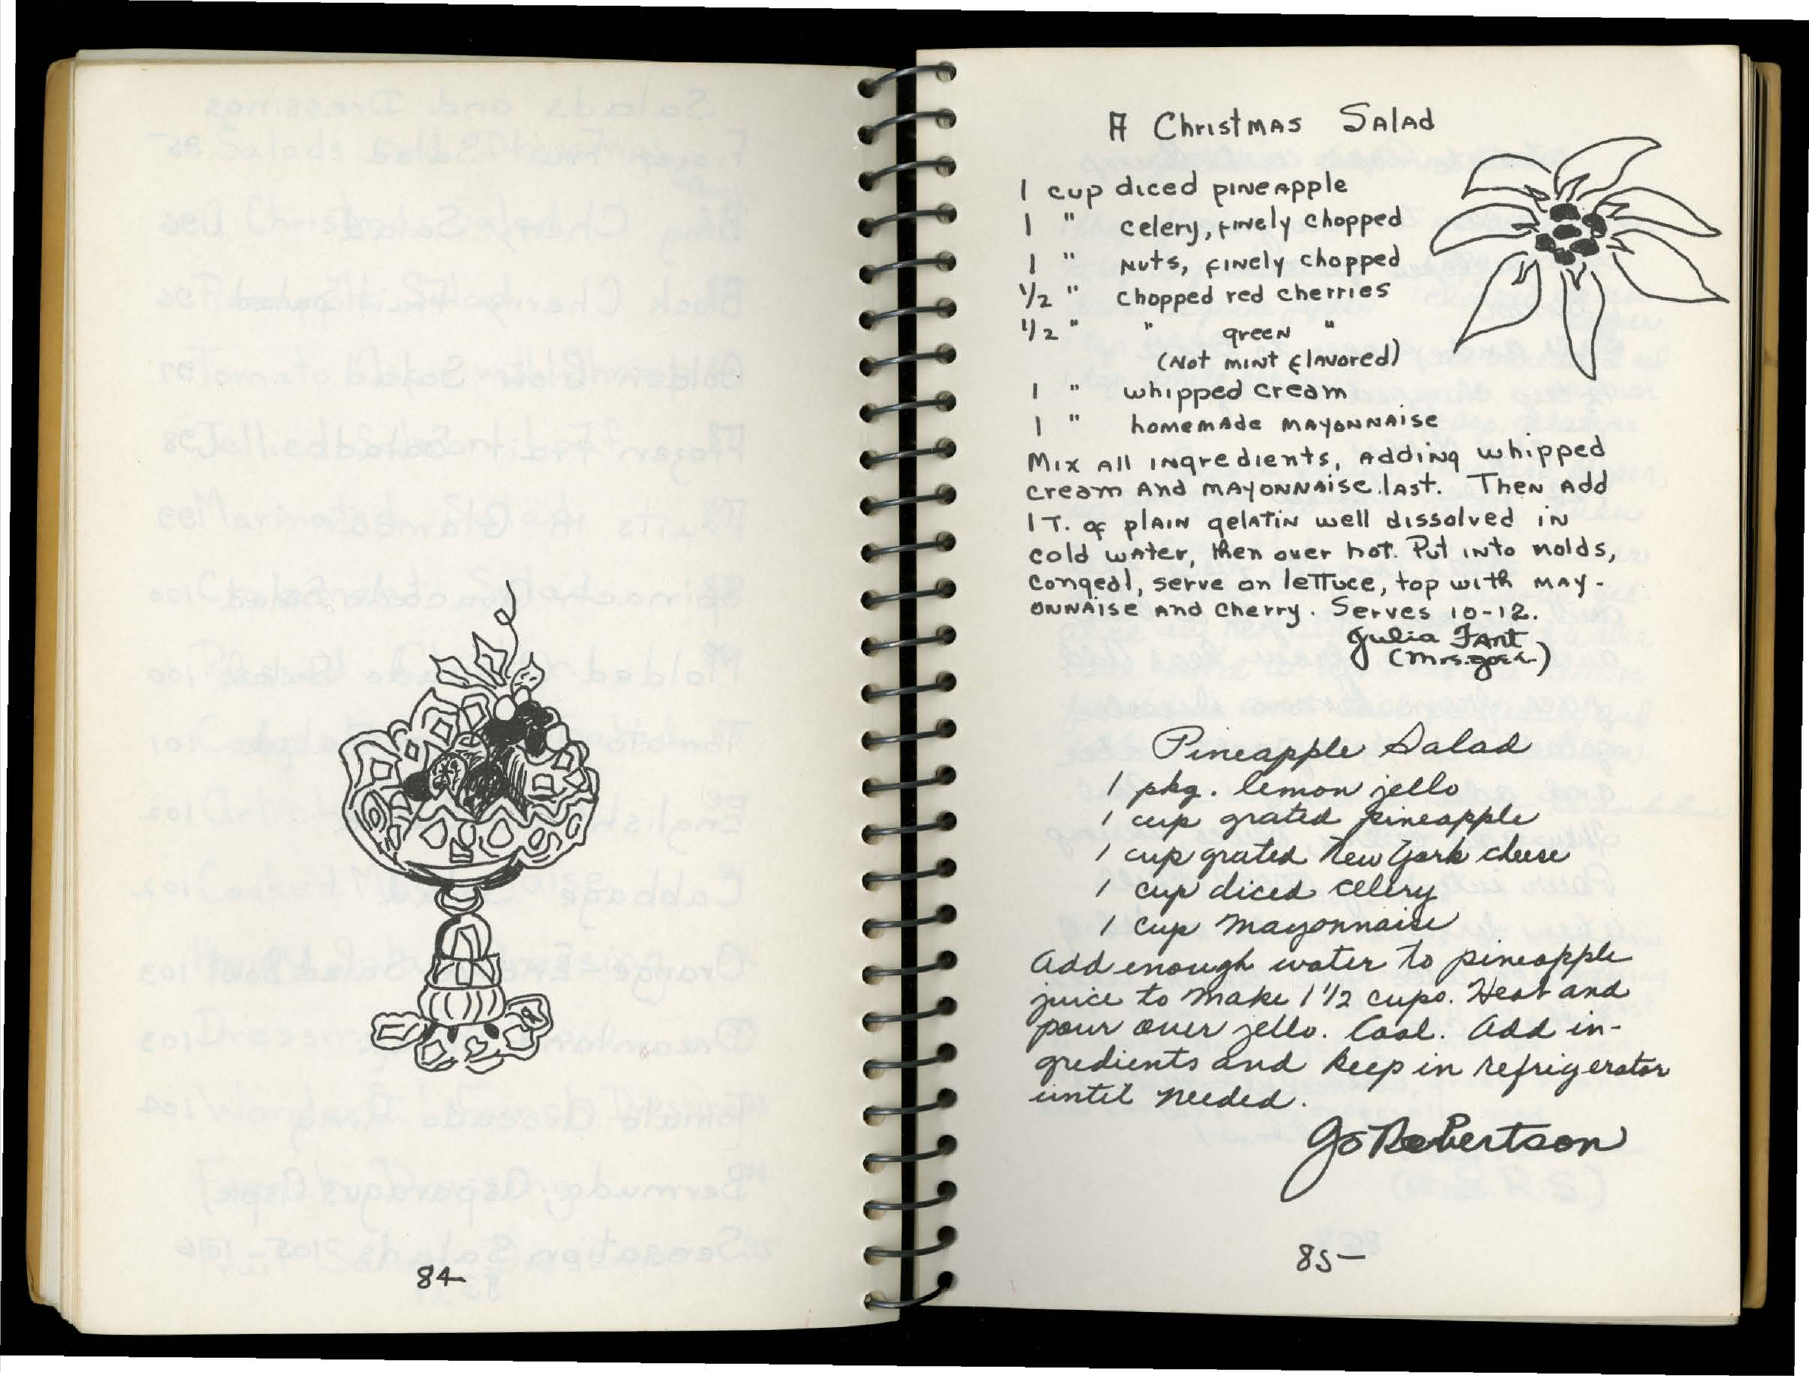 84
A Christmas Salad
1 cup diced pineapple
1 " celery, finely chopped
1 " nuts, finely chopped
1/2 " chopped red cherries
1/2 " " green "
(Not mint flavored)
1 " whipped cream
1 " homemade mayonnaise
Mix all ingredients, adding whipped
cream and mayonnaise last. Then add
1 T. of plain gelatin well dissolved in
cold water, then over hot. Put into molds,
congeal, serve on lettuce, top with may-
onnaise and cherry. Serves 10-12.
Julia Fant
(Mrs. Joe)
Pineapple Salad
1 pkg. lemon jello
1 cup grated pineapple
1 cup grated New York cheese
1 cup diced celery
1 cup mayonnaise
Add enough water to pineapple
juice to make 1 1/2 cups. Heat and
pour over jello. Cool. Add in-
gredients and keep in refrigerator
until needed.
Jo Robertson
85